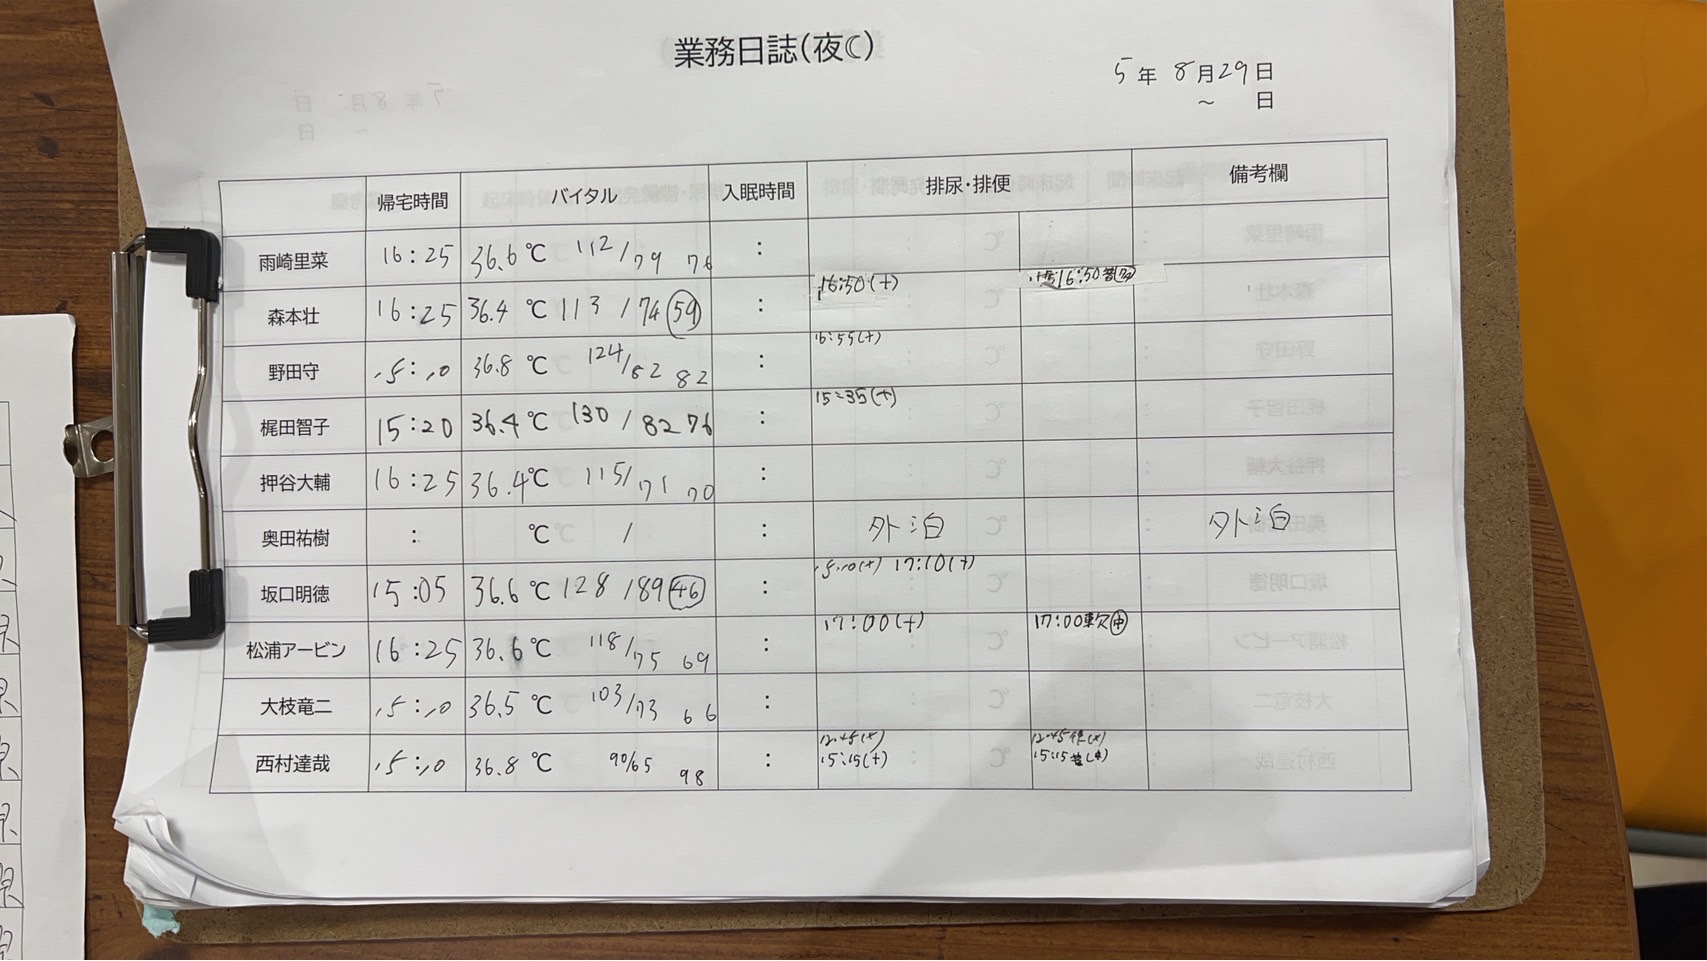 業務日誌(夜☾)
5年 8月29日
～ 日
帰宅時間 バイタル 入眠時間 排尿・排便 備考欄
雨崎里菜 16:25 36.6℃ 112/79 76 :
森本壮 16:25 36.4℃ 113/74 59 : 16:50(+) 16:50
野田守 15:10 36.8℃ 124/82 82 : 16:55(+)
梶田智子 15:20 36.4℃ 130/82 76 : 15:35(+)
押谷大輔 16:25 36.4℃ 115/71 70 :
奥田祐樹 : ℃ / : 外泊 外泊
坂口明徳 15:05 36.6℃ 128/89 46 : 15:10(+) 17:10(+)
松浦アービン 16:25 36.6℃ 118/75 69 : 17:00(+) 17:00軟中
大枝竜二 15:10 36.5℃ 103/73 66 :
西村達哉 15:10 36.8℃ 90/65 98 : 12:45(+) 12:45
15:15(+) 15:15